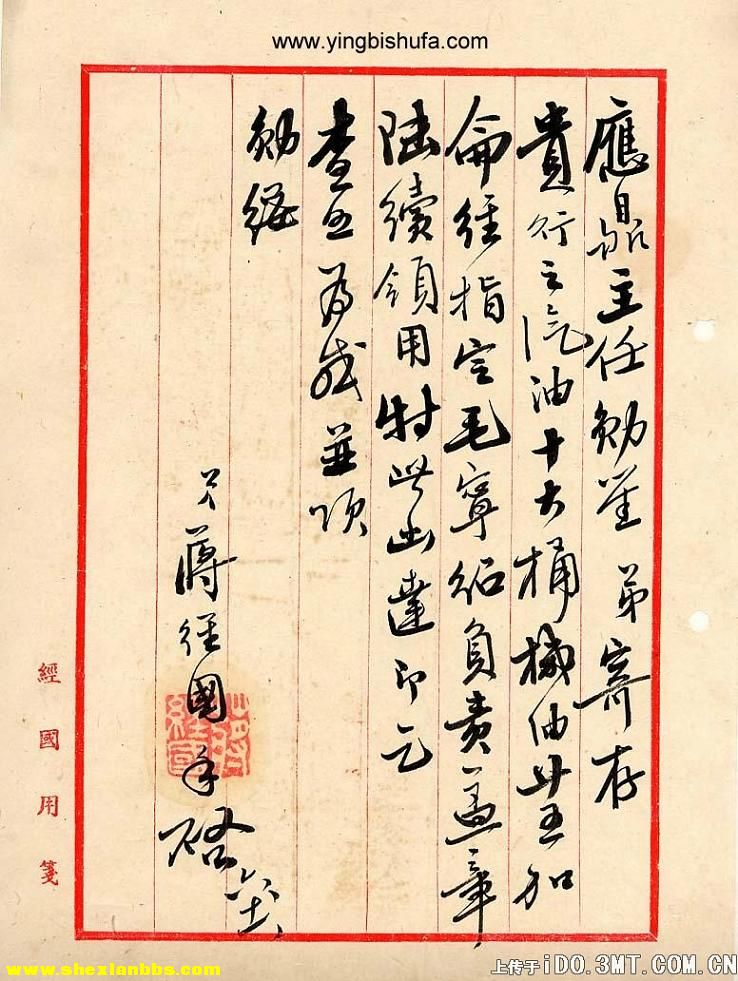 www.yingbishufa.com
應鼎主任勛鑒 弟寄存
貴行之汽油十大桶機油廿五加
侖經指定毛寧紹負責蓋章
陸續領用特此函達即乞
查照為感並頌
勛綏
弟蔣經國手啓
蔣經國
經國用箋
www.shexianbbs.com
上传于iDO.3MT.COM.CN